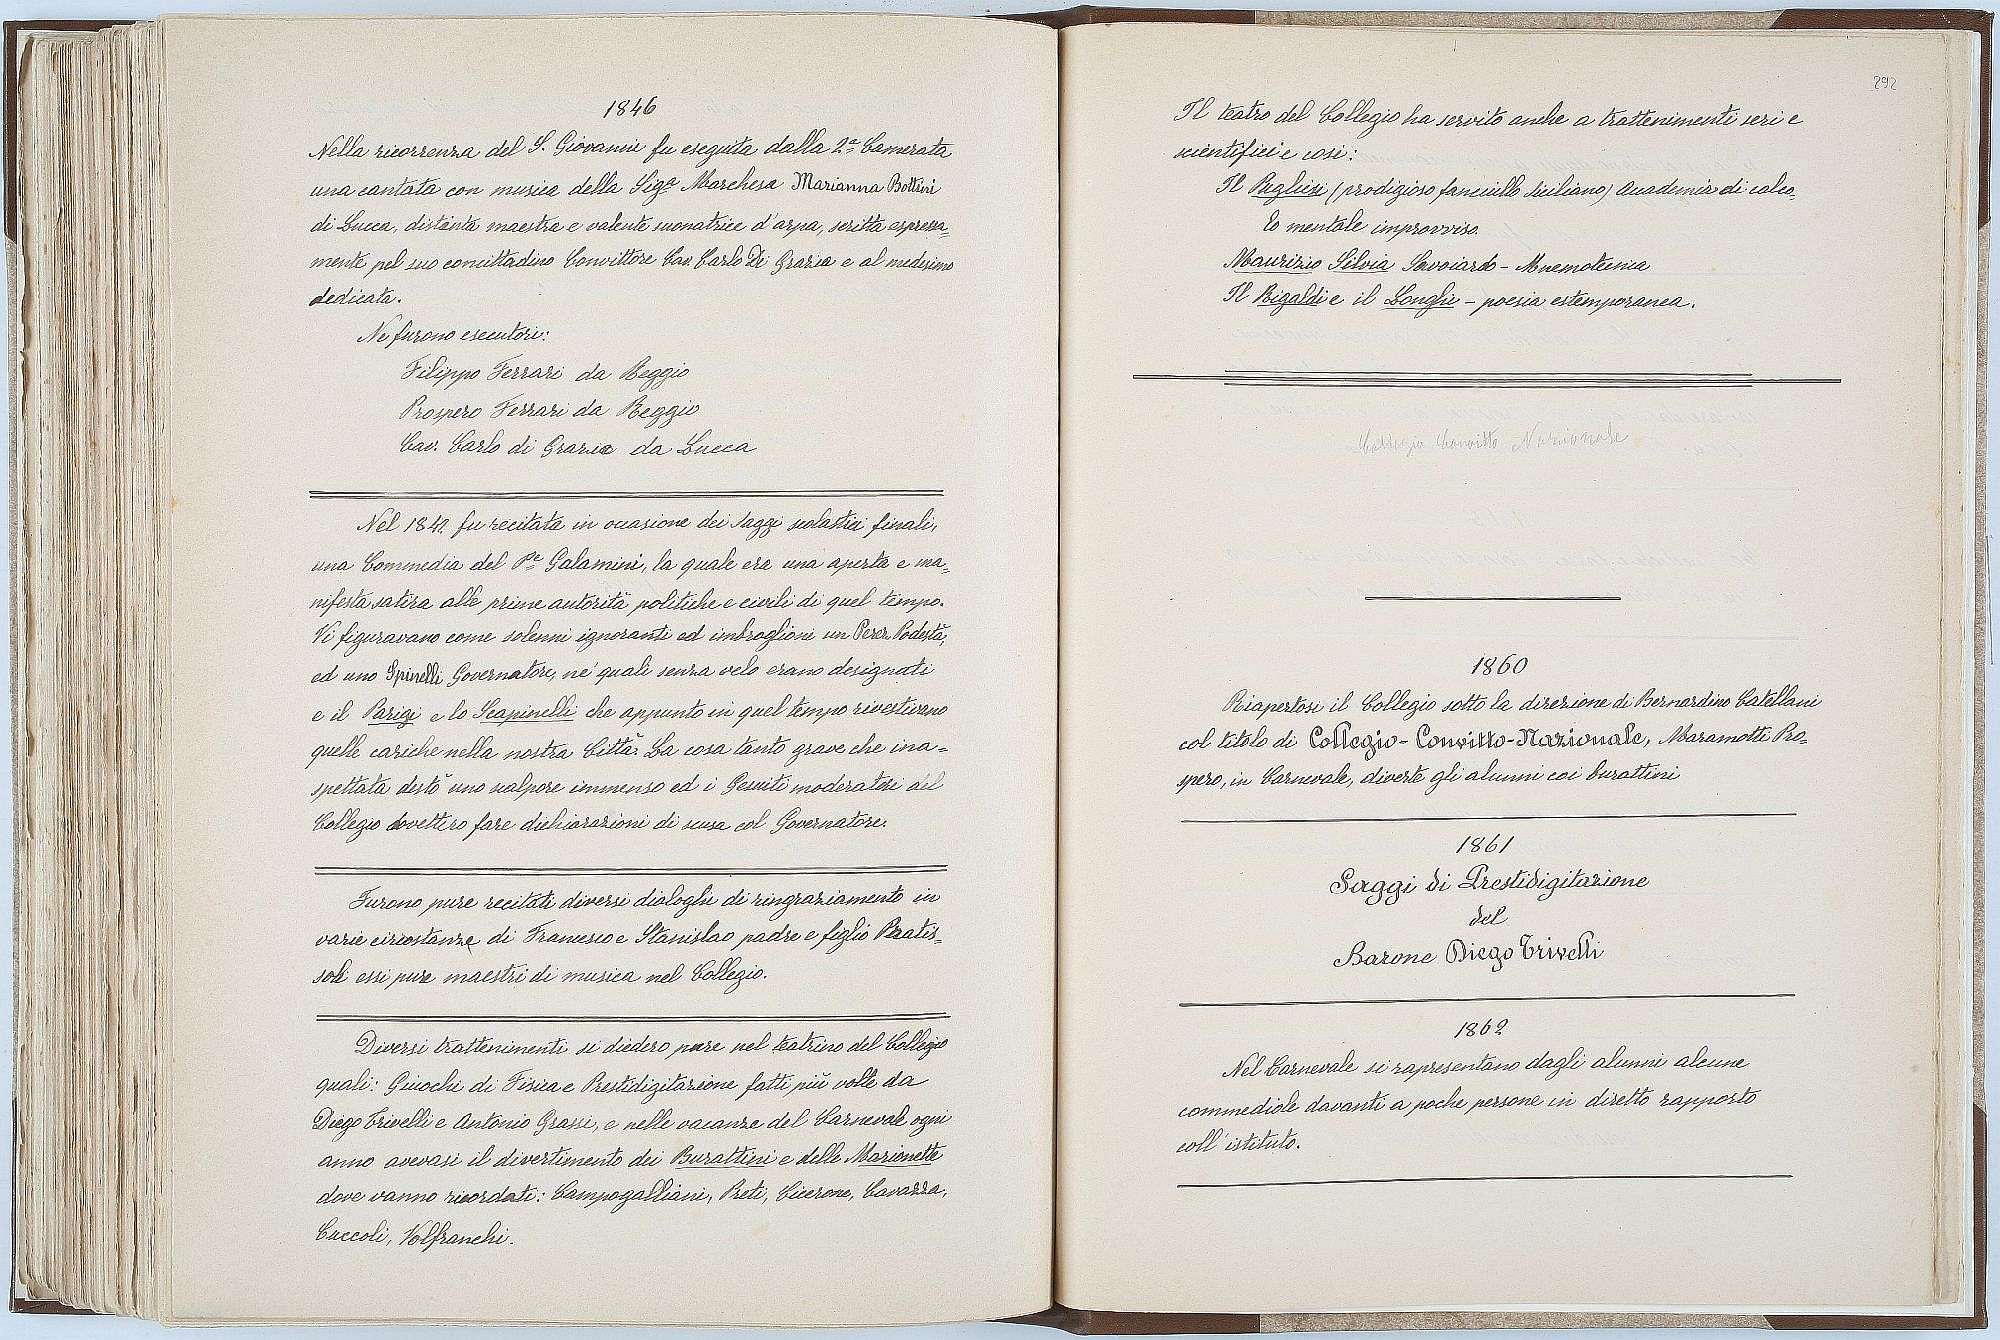 1846
Nella ricorrenza del S. Giovanni fu eseguita dalla 2ª Camerata
una cantata con musica della Sigª Marchesa Marianna Bottini
di Lucca, distinta maestra e valente suonatrice d'arpa, scritta espressa=
mente pel suo concittadino Convittore Cav. Carlo Di Grazia e al medesimo
dedicata.
Ne furono esecutori:
Filippo Ferrari da Reggio
Prospero Ferrari da Reggio
Cav. Carlo di Grazia da Lucca
Nel 1842 fu recitata in occasione dei saggi scolastici finali,
una Commedia del Pe Galamini, la quale era una aperta e ma=
nifesta satira alle prime autorità politiche e civili di quel tempo.
Vi figuravano come solenni ignoranti ed imbroglioni un Podestà,
ed uno Spinelli Governatore, ne' quali senza velo erano designati
e il Parigi e lo Scapinelli che appunto in quel tempo rivestivano
quelle cariche nella nostra Città. La cosa tanto grave che ina=
spettata destò uno scalpore immenso ed i Gesuiti moderatori del
Collegio dovettero fare dichiarazioni di scusa col Governatore.
Furono pure recitati diversi dialoghi di ringraziamento in
varie circostanze di Francesco e Stanislao padre e figlio Pratis=
soli essi pure maestri di musica nel Collegio.
Diversi trattenimenti si diedero pure nel teatrino del Collegio
quali: Giuochi di Fisica e Prestidigitazione fatti più volte da
Diego Trivelli e Antonio Grassi, e nelle vacanze del Carnevale ogni
anno avevasi il divertimento dei Burattini e delle Marionette
dove vanno ricordati: Campogalliani, Preti, Cicerone, Cavazza,
Cuccoli, Volfranchi.
292
Il teatro del Collegio ha servito anche a trattenimenti seri e
scientifici e così:
Il Puglisi (prodigioso fanciullo Siciliano) Accademia di calco=
lo mentale improvviso.
Maurizio Silvia Savoiardo - Mnemotecnia
Il Rigaldi e il Longhi - poesia estemporanea.
Collegio Convitto Nazionale
1860
Riapertosi il Collegio sotto la direzione di Bernardino Catellani
col titolo di Collegio-Convitto-Nazionale, Maramotti Pro=
spero, in Carnevale, diverte gli alunni coi burattini
1861
Saggi di Prestidigitazione
del
Barone Diego Trivelli
1862
Nel Carnevale si rapresentano dagli alunni alcune
commediole davanti a poche persone in diretto rapporto
coll'istituto.